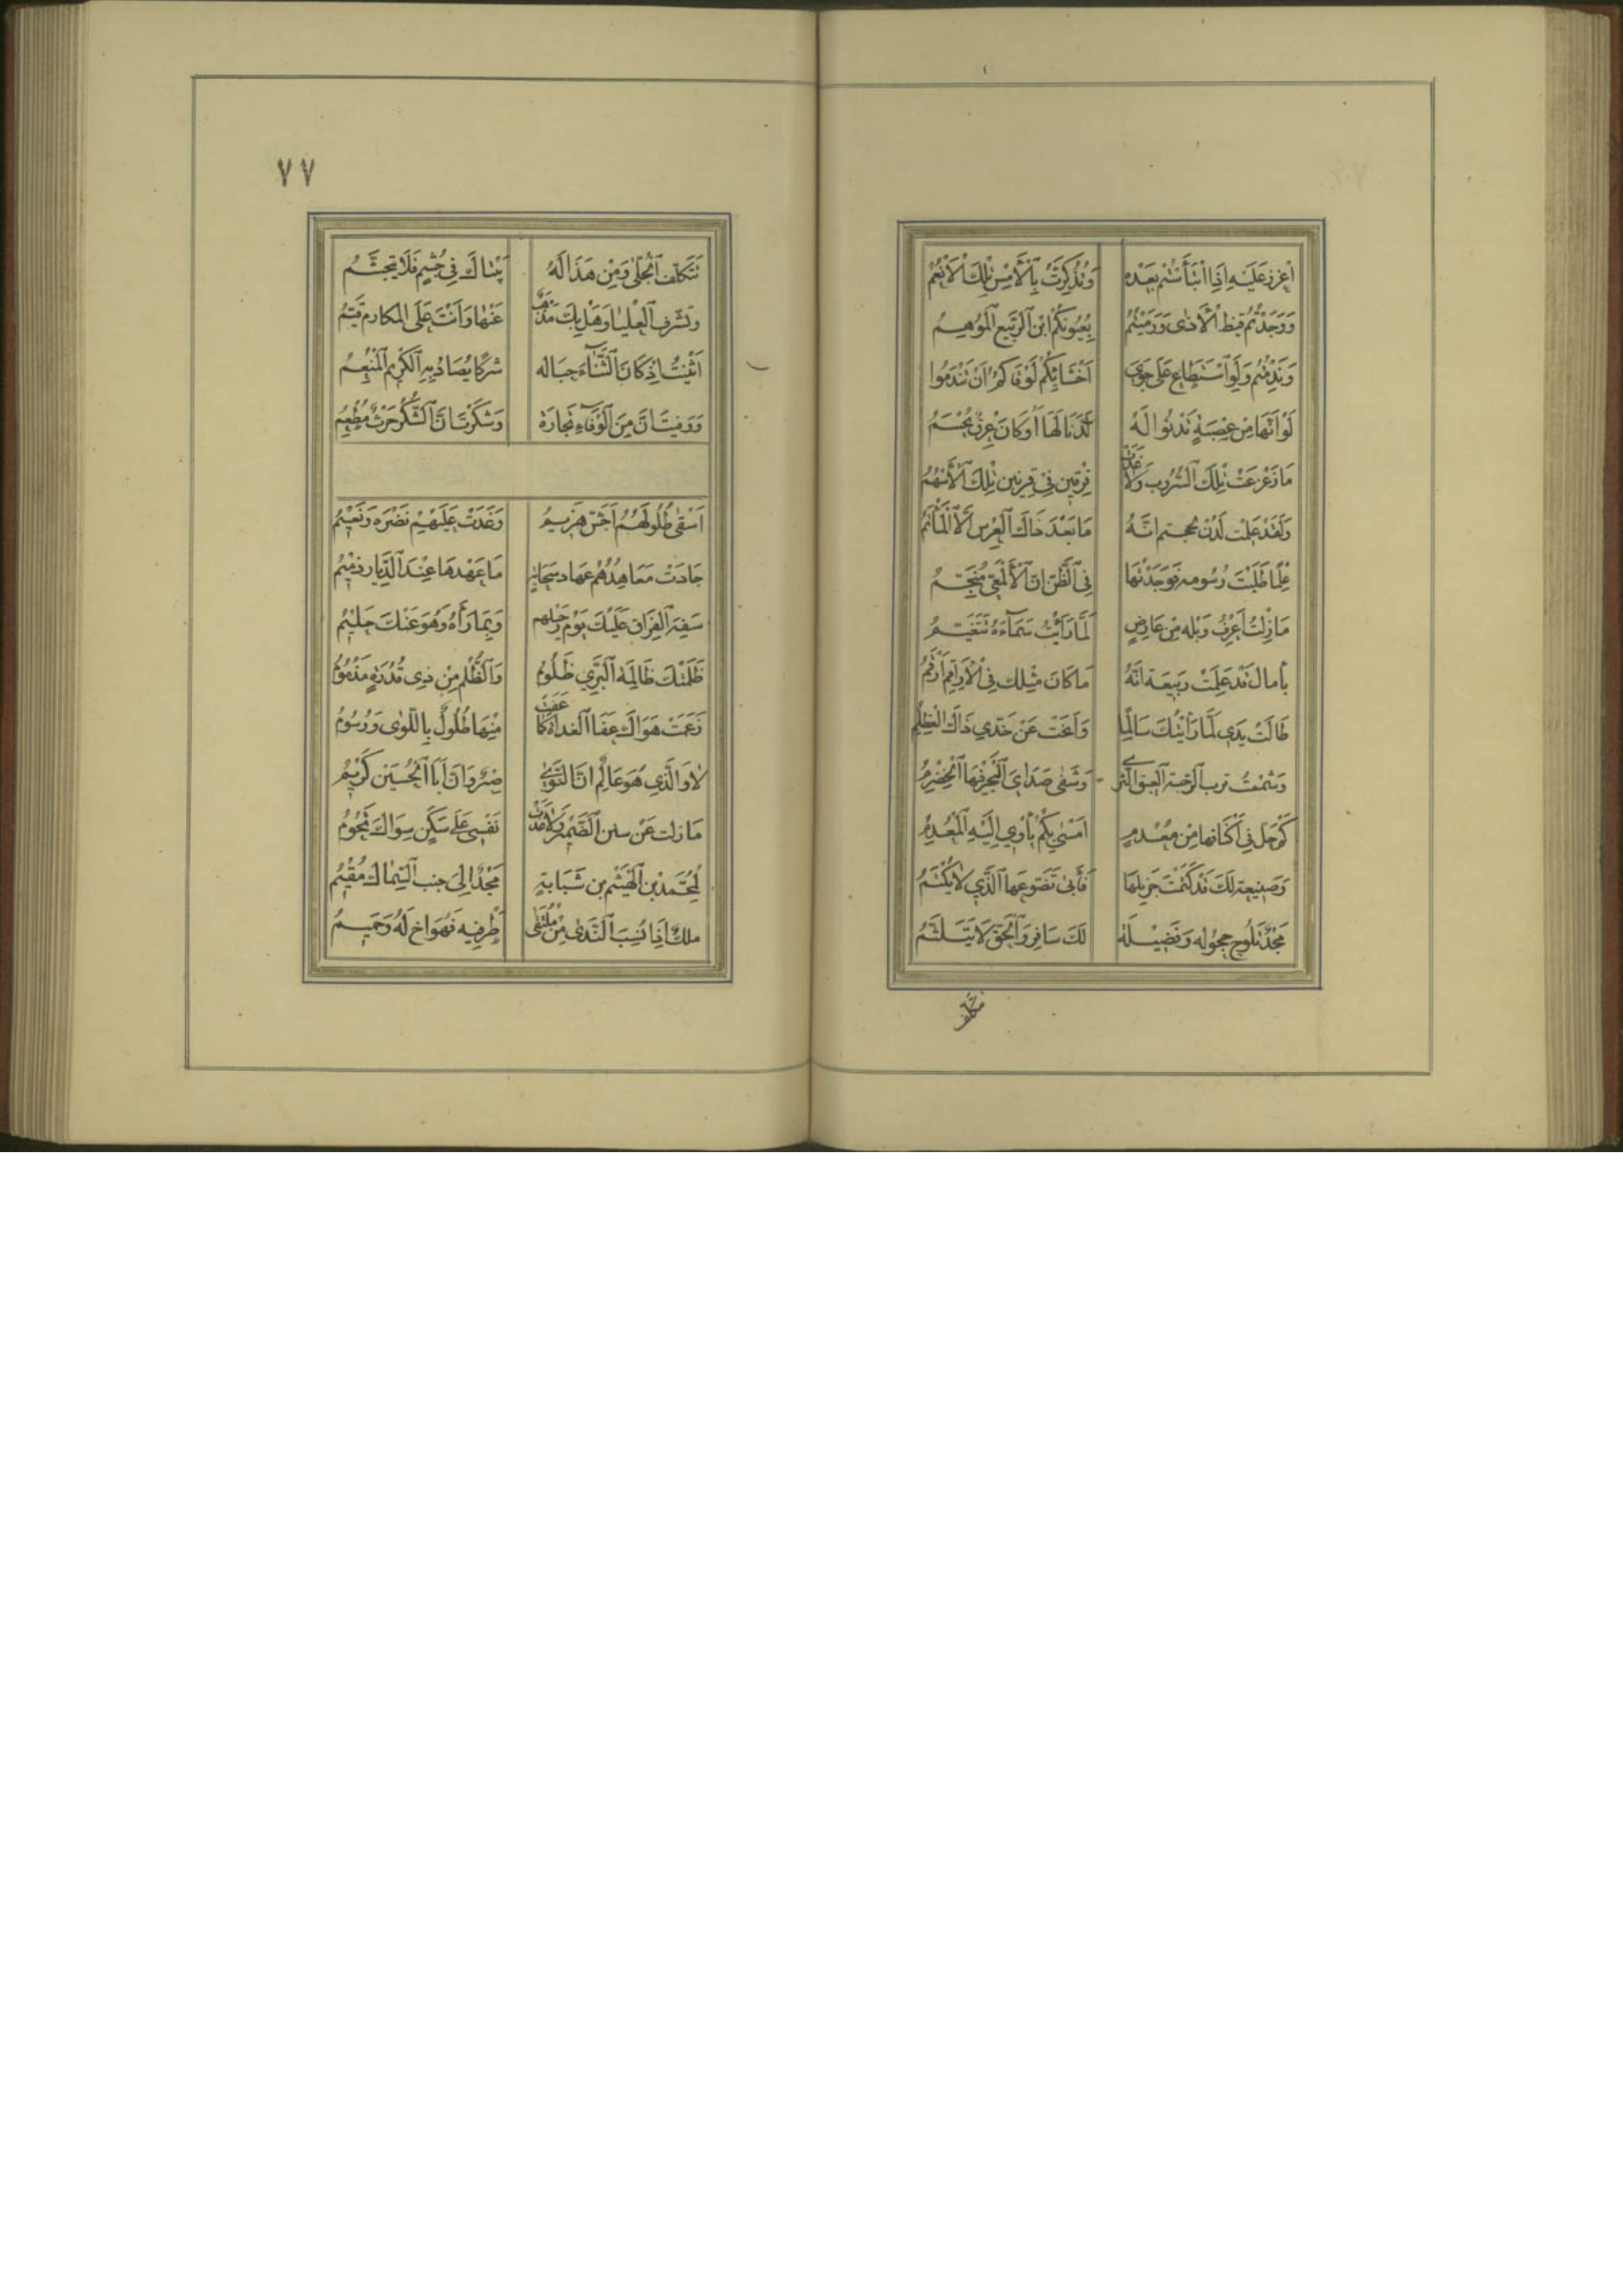 اعزز عليه اذا ابتأستم بعده وتذكرت بالأمس تلك الأنعم
ووجدتم قيظ الأذى ورميتم بعيونكم ابن الربيع المرهم
وندمتم ولو استطاع على جوى احشائكم لوقاكم ان تندموا
لو انها من عصبة تدنوا له لدنا لها أو كان عرق يحسم
ما ذعزعت تلك السروب ولا غدت فرقين في قرنين تلك الأسهم
ولقد علمت لدن لججتم انه ما بعد ذاك العرس الا المأتم
علما طلبت رسومه فوجدتها في الظن ان الألمعي منجم
ما زلت أعرف وبله من عارض لما رأيت سماءه تتغيم
يا مال قد علمت ربيعة انه ما كان مثلك في الأراقم أرقم
طالت يدي لما رأيتك سالما وانحت عن خدي ذاك العظلم
وشممت ترب الرحبة العبق الثرى وشفى صداي البحر فيها الخضرم
كم حل في أكنافها من معدم امسى بكم يأوي اليه المعدم
وصنيعة لك قد كتمت جزيلها فأبى تضوعها الذي لا يكتم
مجد تلوح حجوله وفضيلة لك سافر والحق لا يتلثم
تتكلف
٧٧
تتكلف الجلى ومن هذا له بيتاك في جشم فلا يتجشم
وتشرف العليا وهل بك مذهب عنها وأنت على المكارم قيم
اثنيت اذ كان الثناء حباله شركا يصاد به الكريم المنعم
ووفيت ان من الوفاء تجارة وشكرت ان الشكر حرث مطعم
اسقى طلولهم أجش هزيم وغدت عليهم نضرة ونعيم
جادت معاهدهم عهاد سحابة ما عهدها عند الديار ذميم
سفه الفراق عليك يوم رحيلهم وبما رأه وهو عنك حليم
ظلمتك ظالمة البري ظلوم والظلم من ذي قدرة مذموم
زعمت هواك عفا الغداة كما عفت منها طلول باللوى ورسوم
لا والذي هو عالم ان النوى صبر وان أبا الحسين كريم
ما زلت عن سنن الضمير ولا غدت نفسي على سكن سواك تحوم
لمحمد بن الهيثم بن شبابة مجد الى جنب السماك مقيم
ملك اذا نسب الندى من ملتقى طرفيه فهو اخ له وحميم